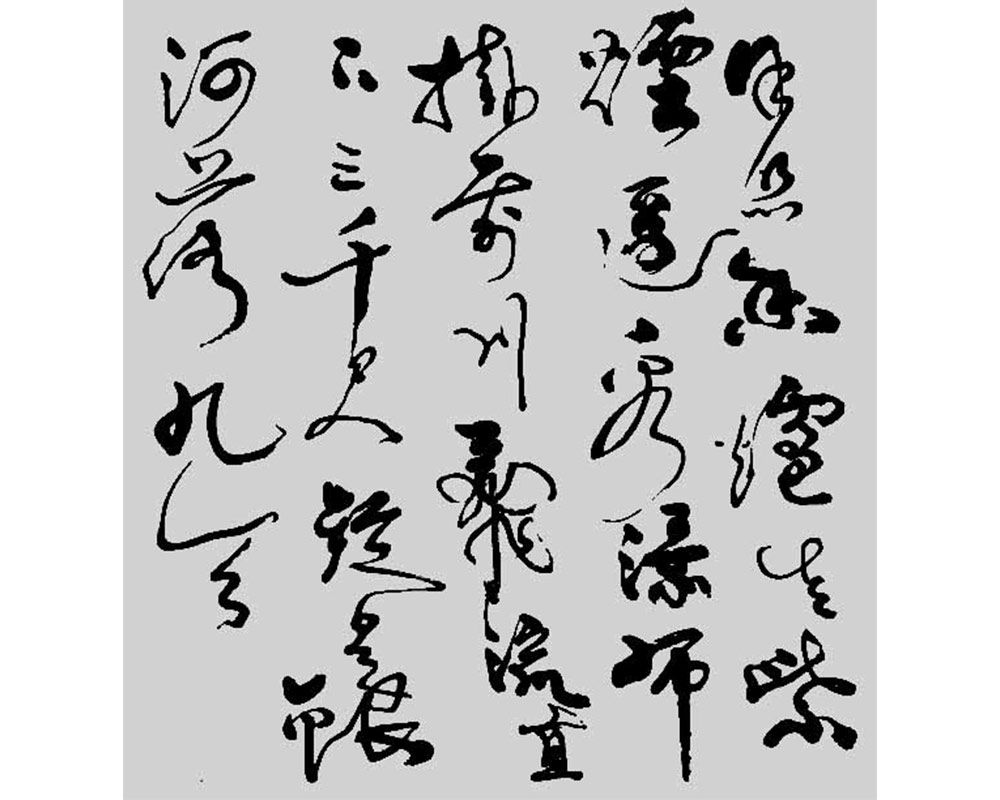 日照香爐生紫
煙遥看瀑布
掛前川飛流直
下三千尺疑是銀
河落九天